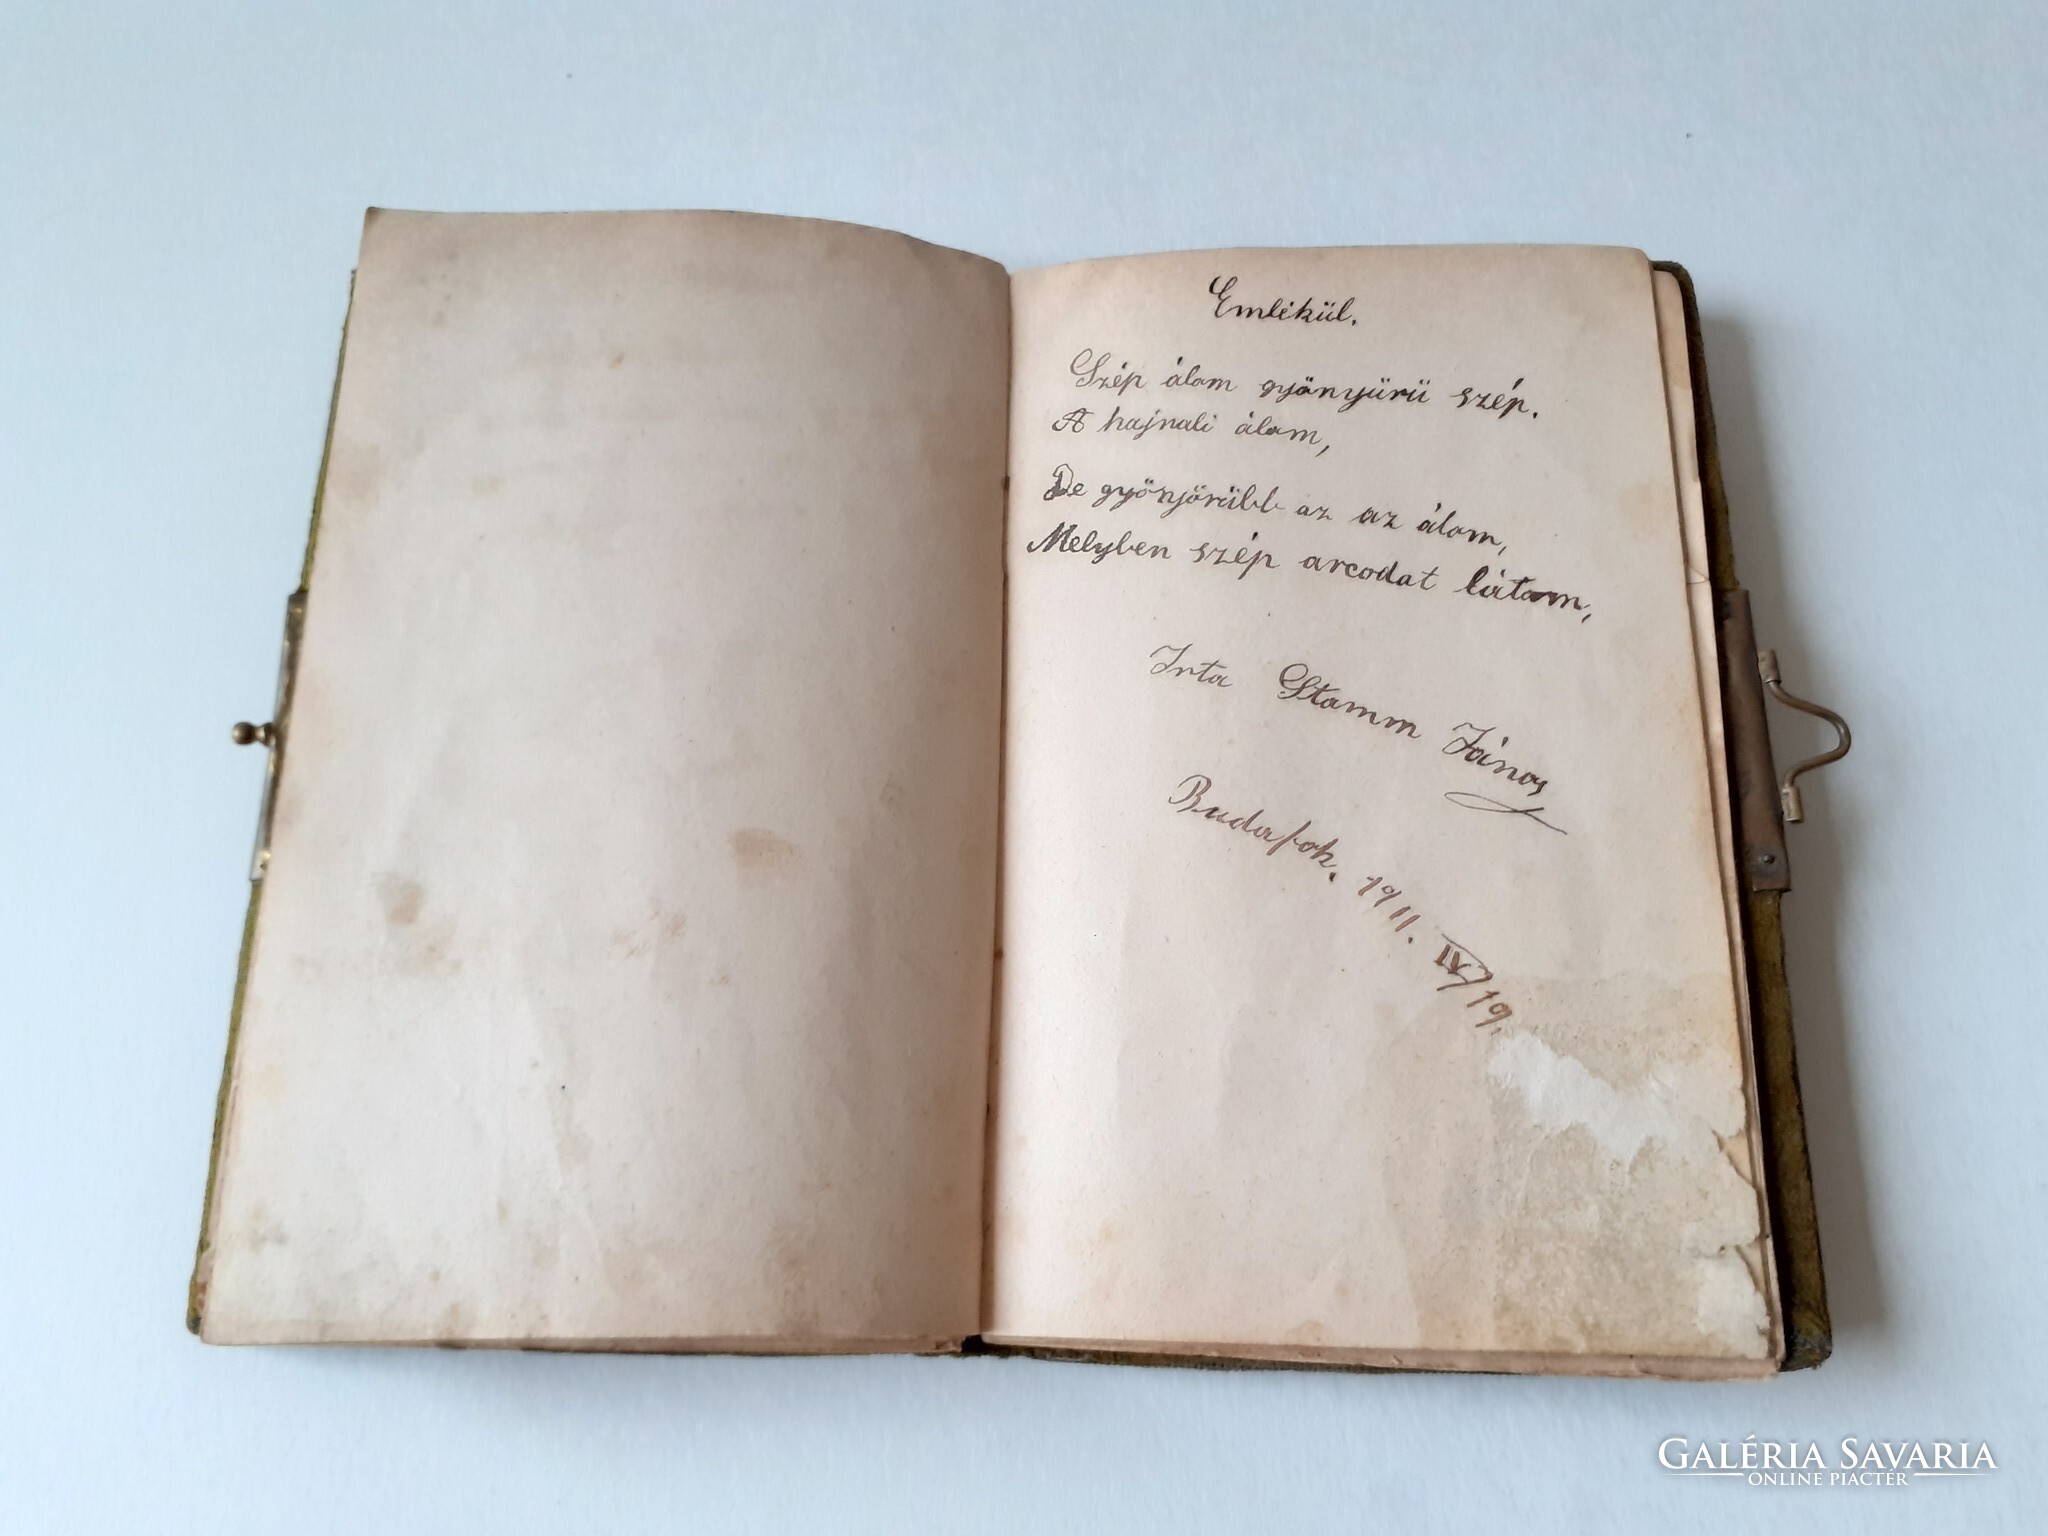 Emlékül.
Szép álom gyönyürü szép.
A hajnali álom,
De gyönyörübb az az álom,
Melyben szép arcodat látom,
Irta Stamm János
Budafok. 1911. IV/19.
GALÉRIA SAVARIA
ONLINE PIACTÉR